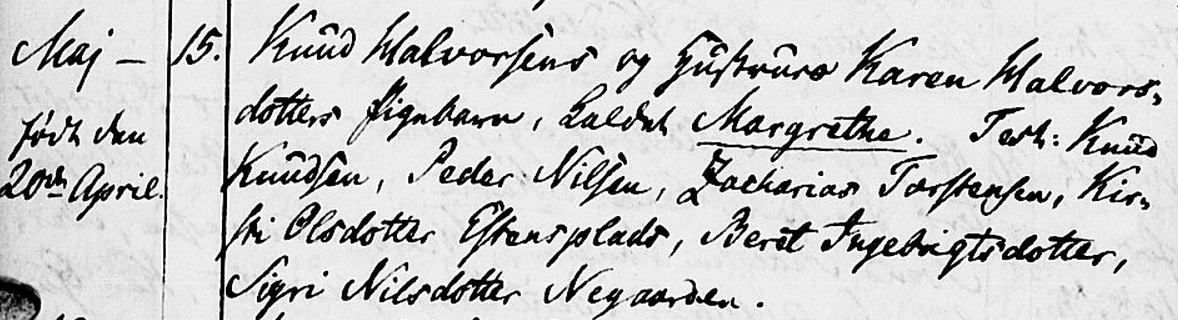 Maj – 15. Knud Halvorsens og Hustrues Karen Halvors-
født den dotters Pigebarn, kaldet Margrethe. Test: Knud
20de April. Knudsen, Peder Nilsen, Zacharias Torstensen, Kir-
sti Olsdotter Estensplads, Berit Ingebrigtsdotter,
Sigri Nilsdotter Negaarden.